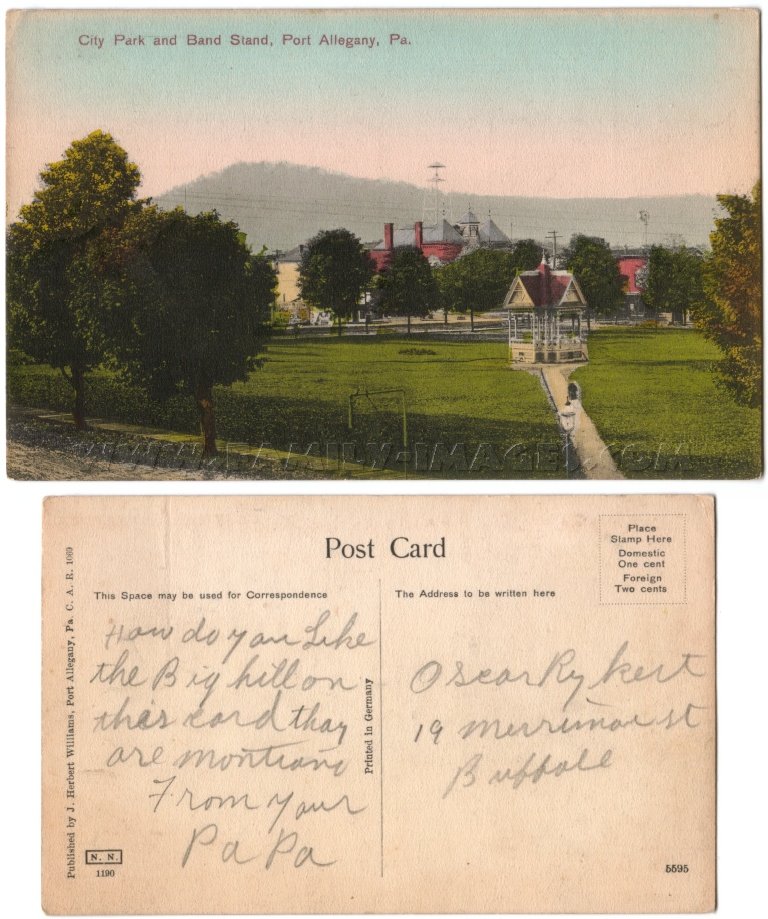 City Park and Band Stand, Port Allegany, Pa.
WWW.FAMILY-IMAGES.COM
Post Card
Place
Stamp Here
Domestic
One cent
Foreign
Two cents
This Space may be used for Correspondence
The Address to be written here
How do you Like
the Big hill on
this card thay
are montians
From your
PaPa
Oscar Rykert
19 merrimac st
Buffale
Published by J. Herbert Williams, Port Allegany, Pa. C. A. R. 1089
Printed in Germany
N. N.
1190
5595